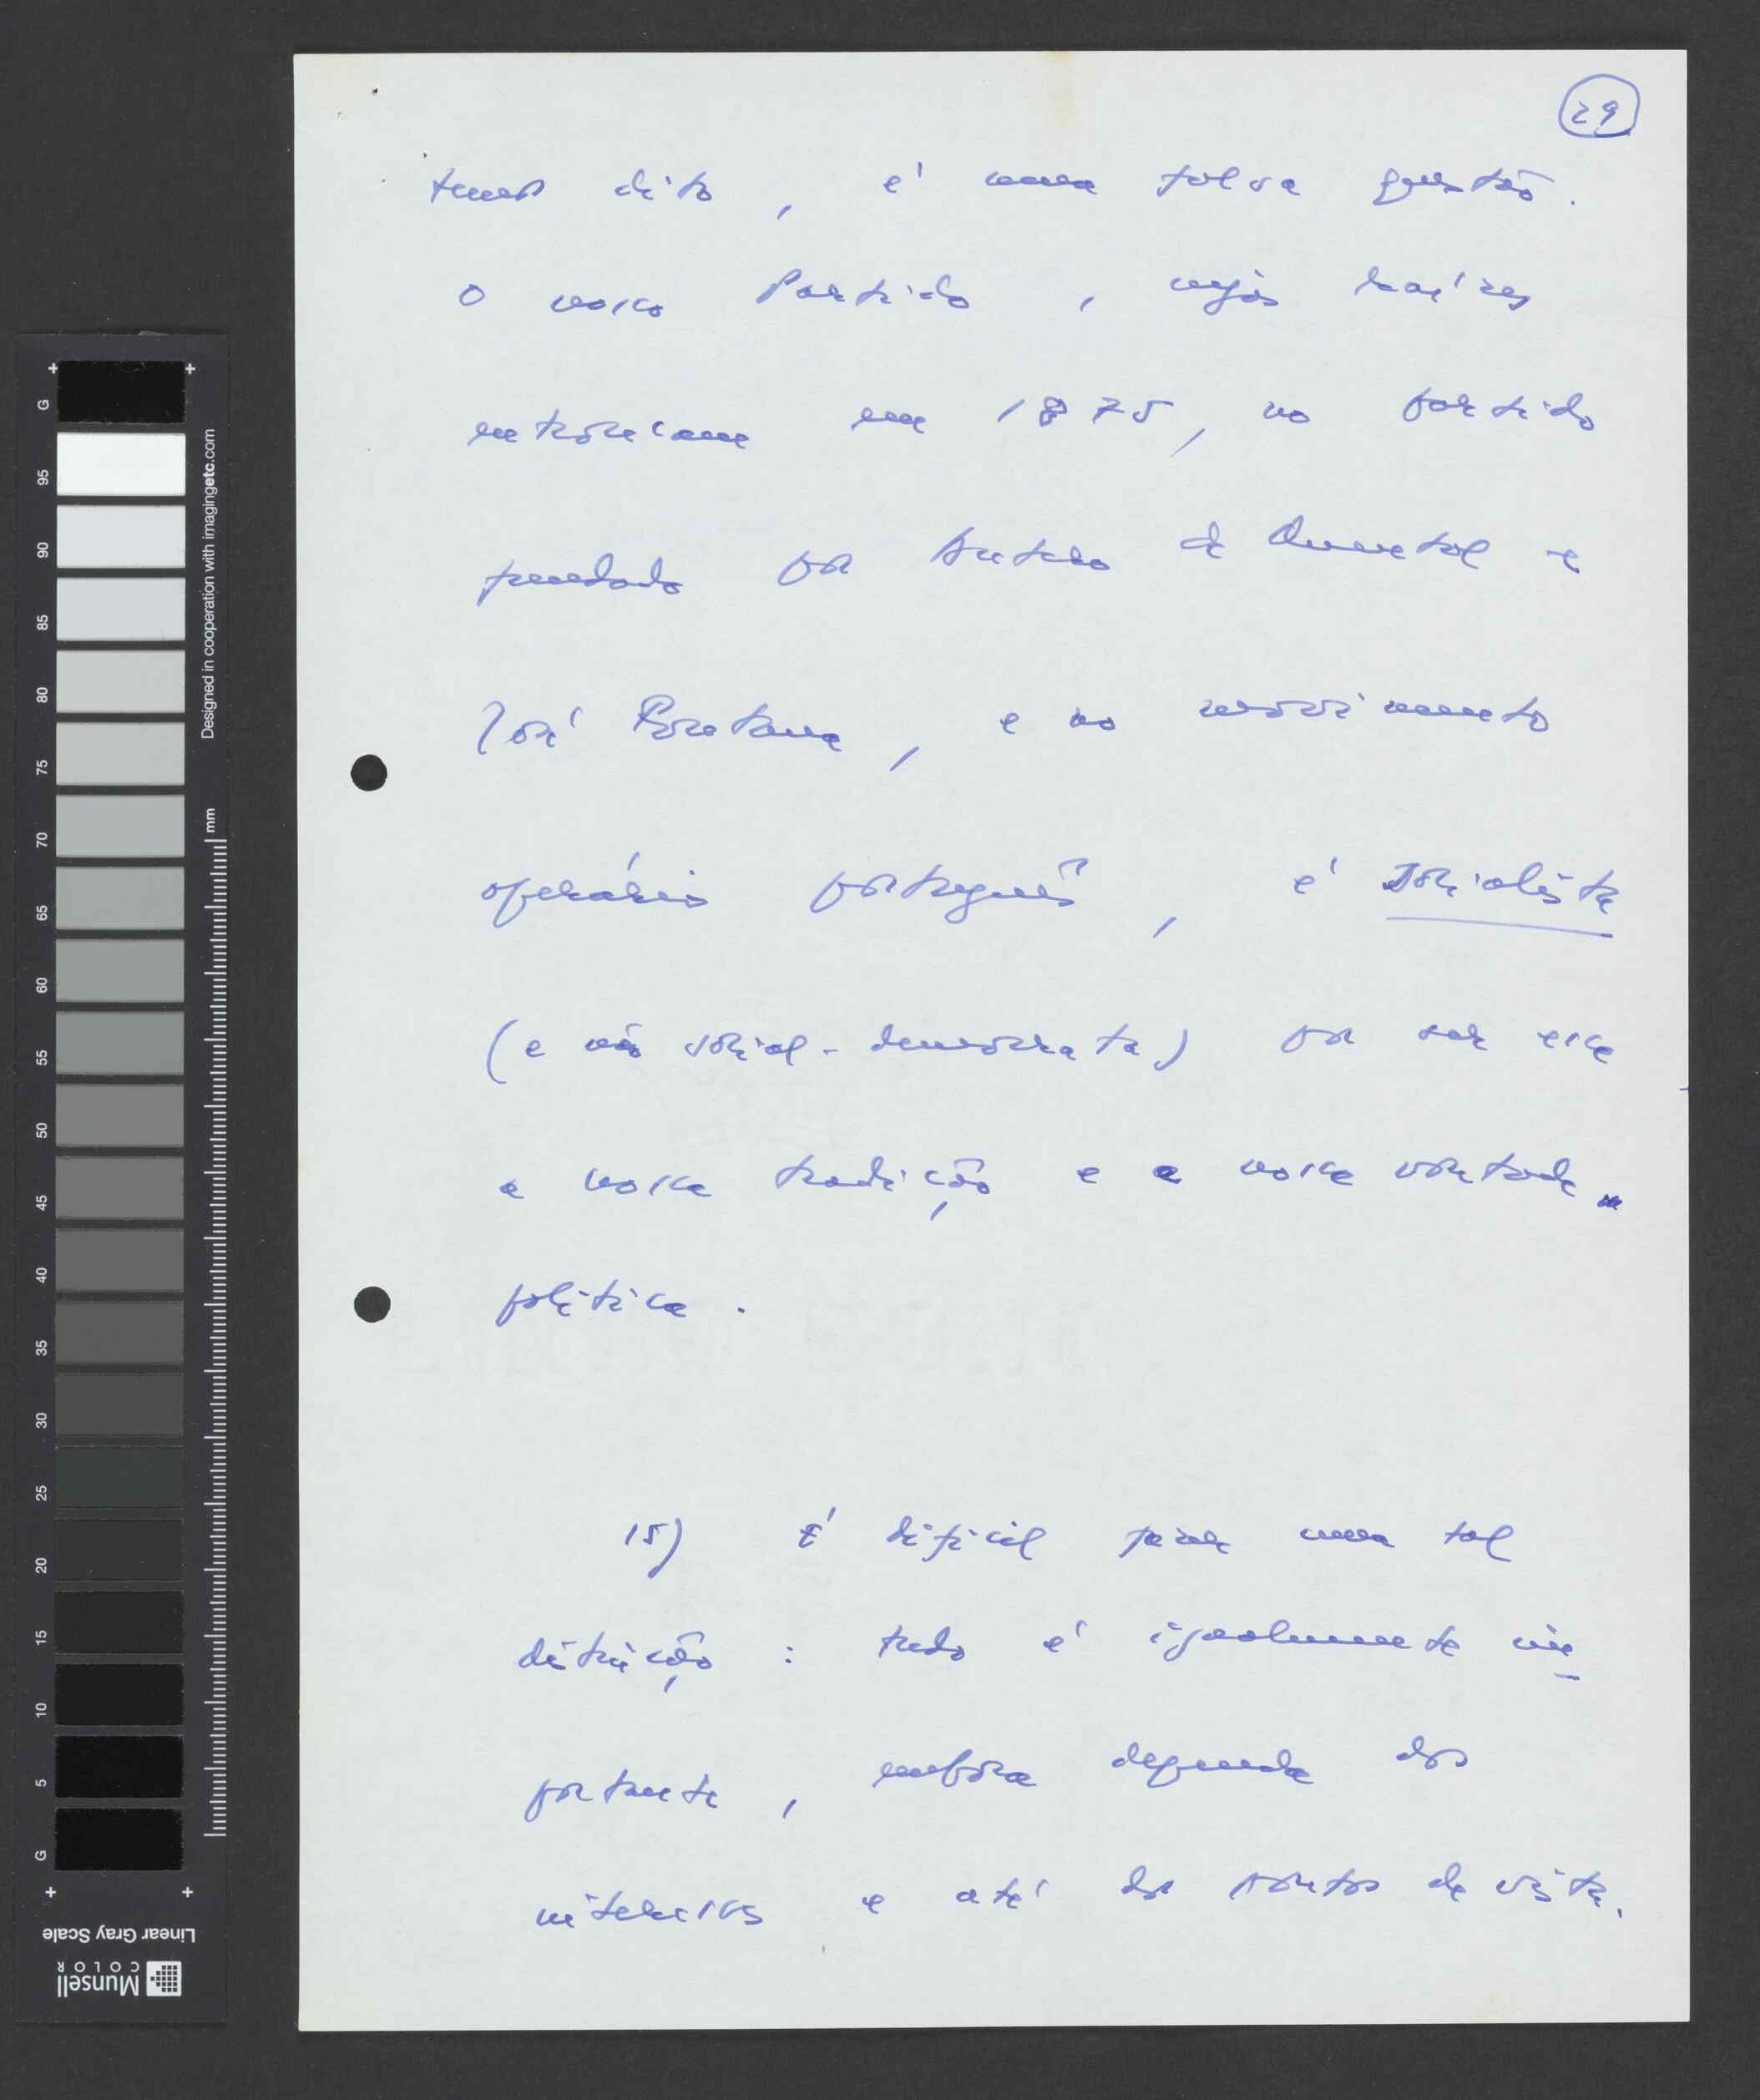 29
temos dito, é uma falsa questão.
O nosso Partido, cujas raízes
entroncam em 1875, no partido
fundado por Antero de Quental e
José Fontana, e no movimento
operário português, é Socialista
(e não social-democrata) por ser essa
a nossa tradição e a nossa vontade
política.
15) É difícil fazer uma tal
distinção: tudo é igualmente im
portante, embora dependa dos
interesses e até dos pontos de vista.
G
95
90
85
80
75
70
65
60
55
50
45
40
35
30
25
20
15
10
5
G
Designed in cooperation with imagingetc.com
mm
Linear Gray Scale
Munsell
COLOR